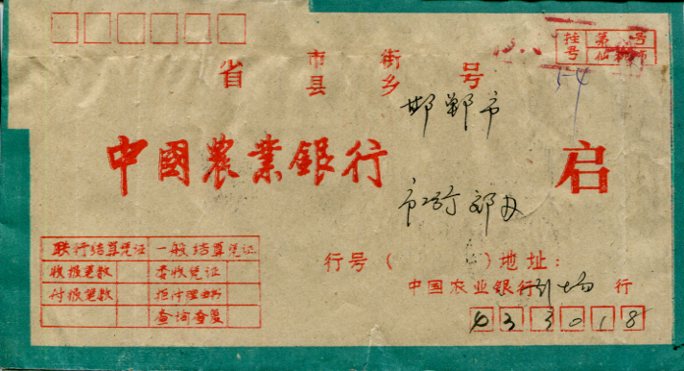 挂号 第 号
省 市县 街乡 号
邯郸市
中國農業銀行 启
联行结算凭证 一般结算凭证
收报笔数 委收凭证
付报笔数 拒付理由书
查询查复
行号（ ）地址：
中国农业银行 行
033018